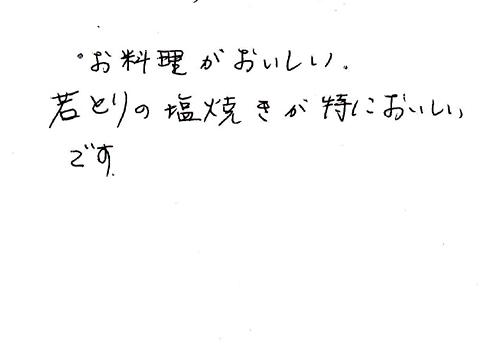 ・お料理がおいしい.
若とりの塩焼きが特においしい
です.